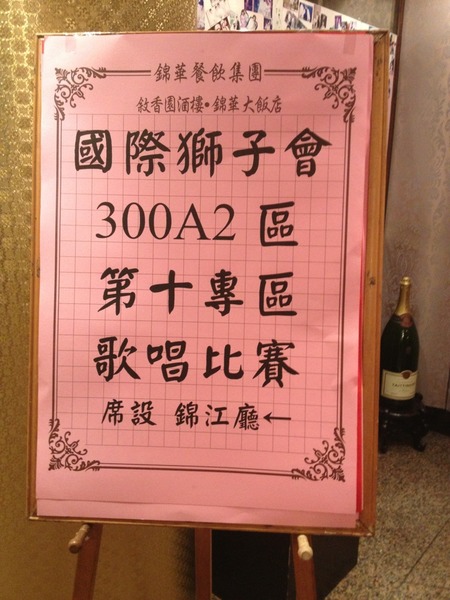 錦華餐飲集團
敘香園酒樓•錦華大飯店
國際獅子會
300A2 區
第十專區
歌唱比賽
席設 錦江廳←